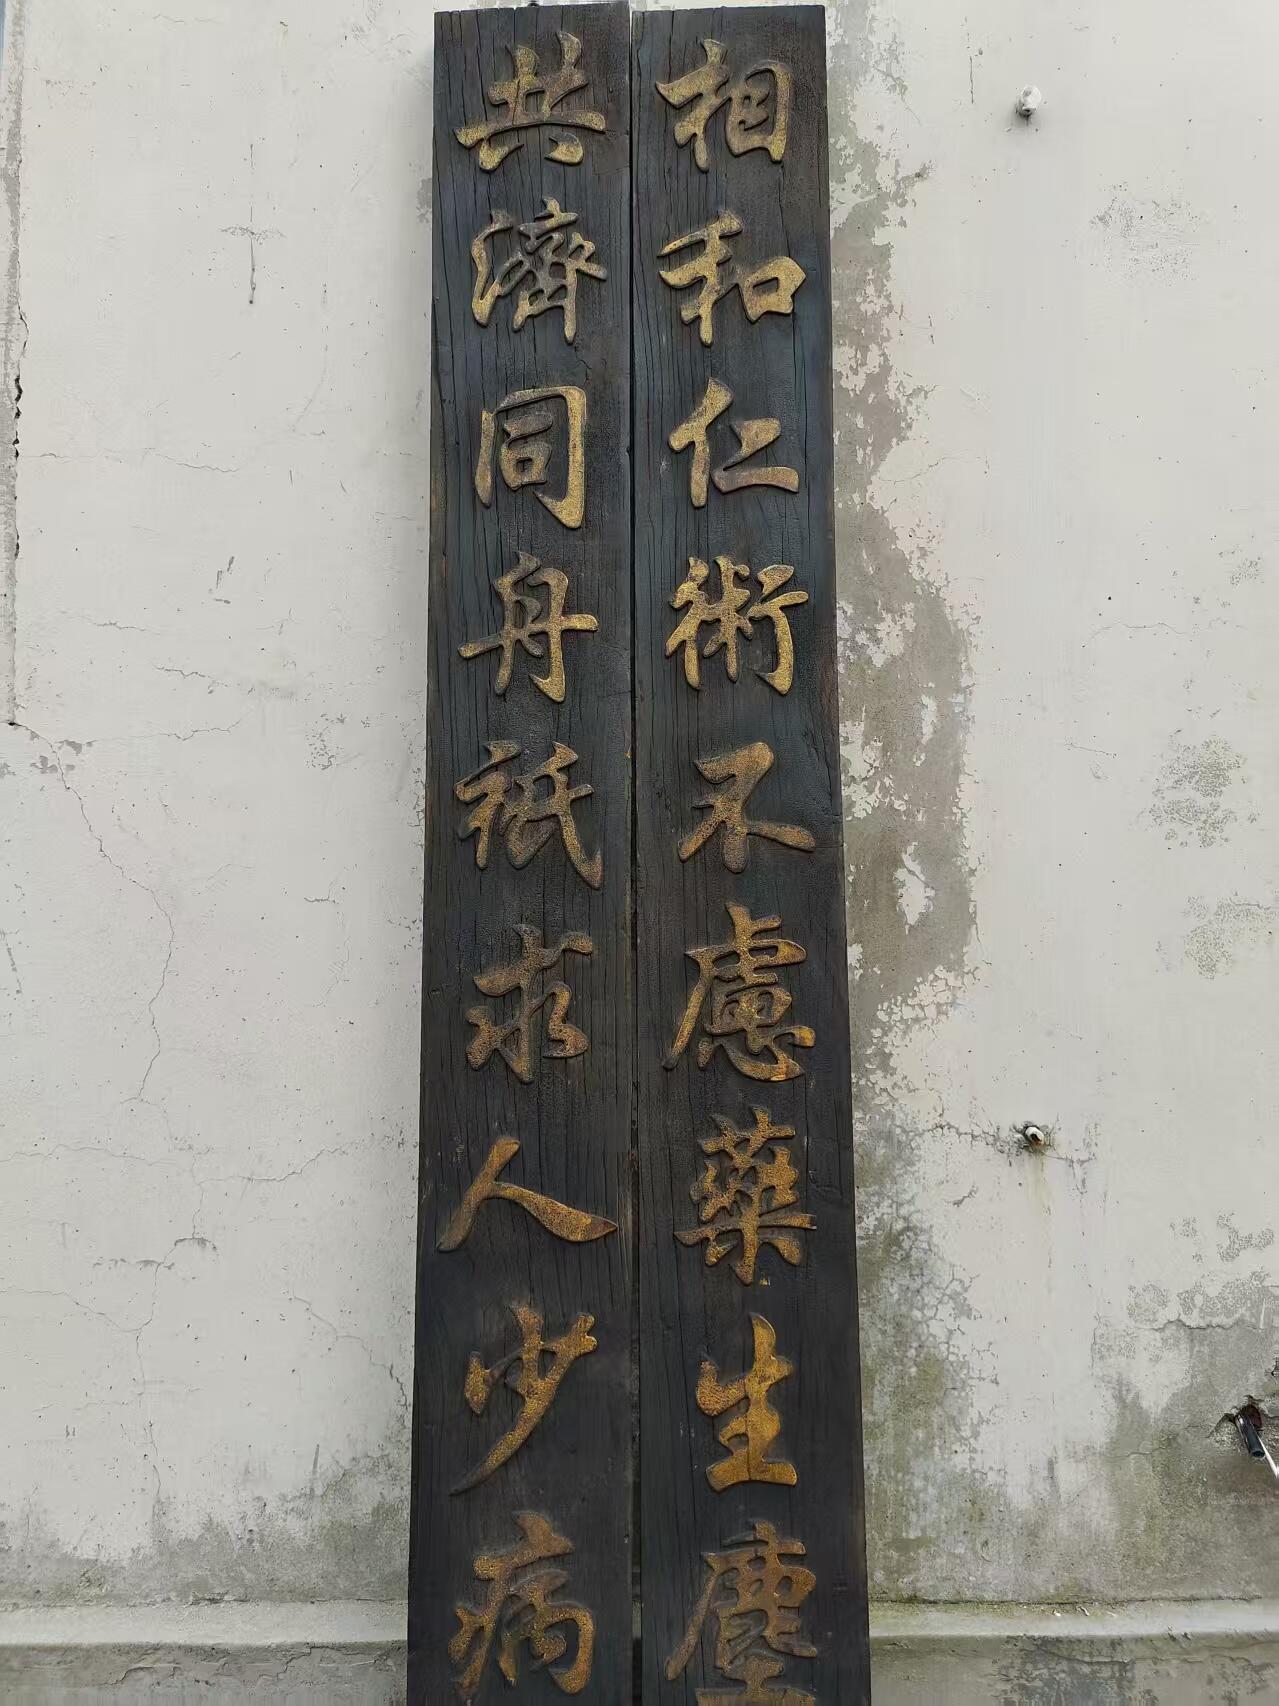 共濟同舟祇求人少病
相和仁術不慮藥生塵